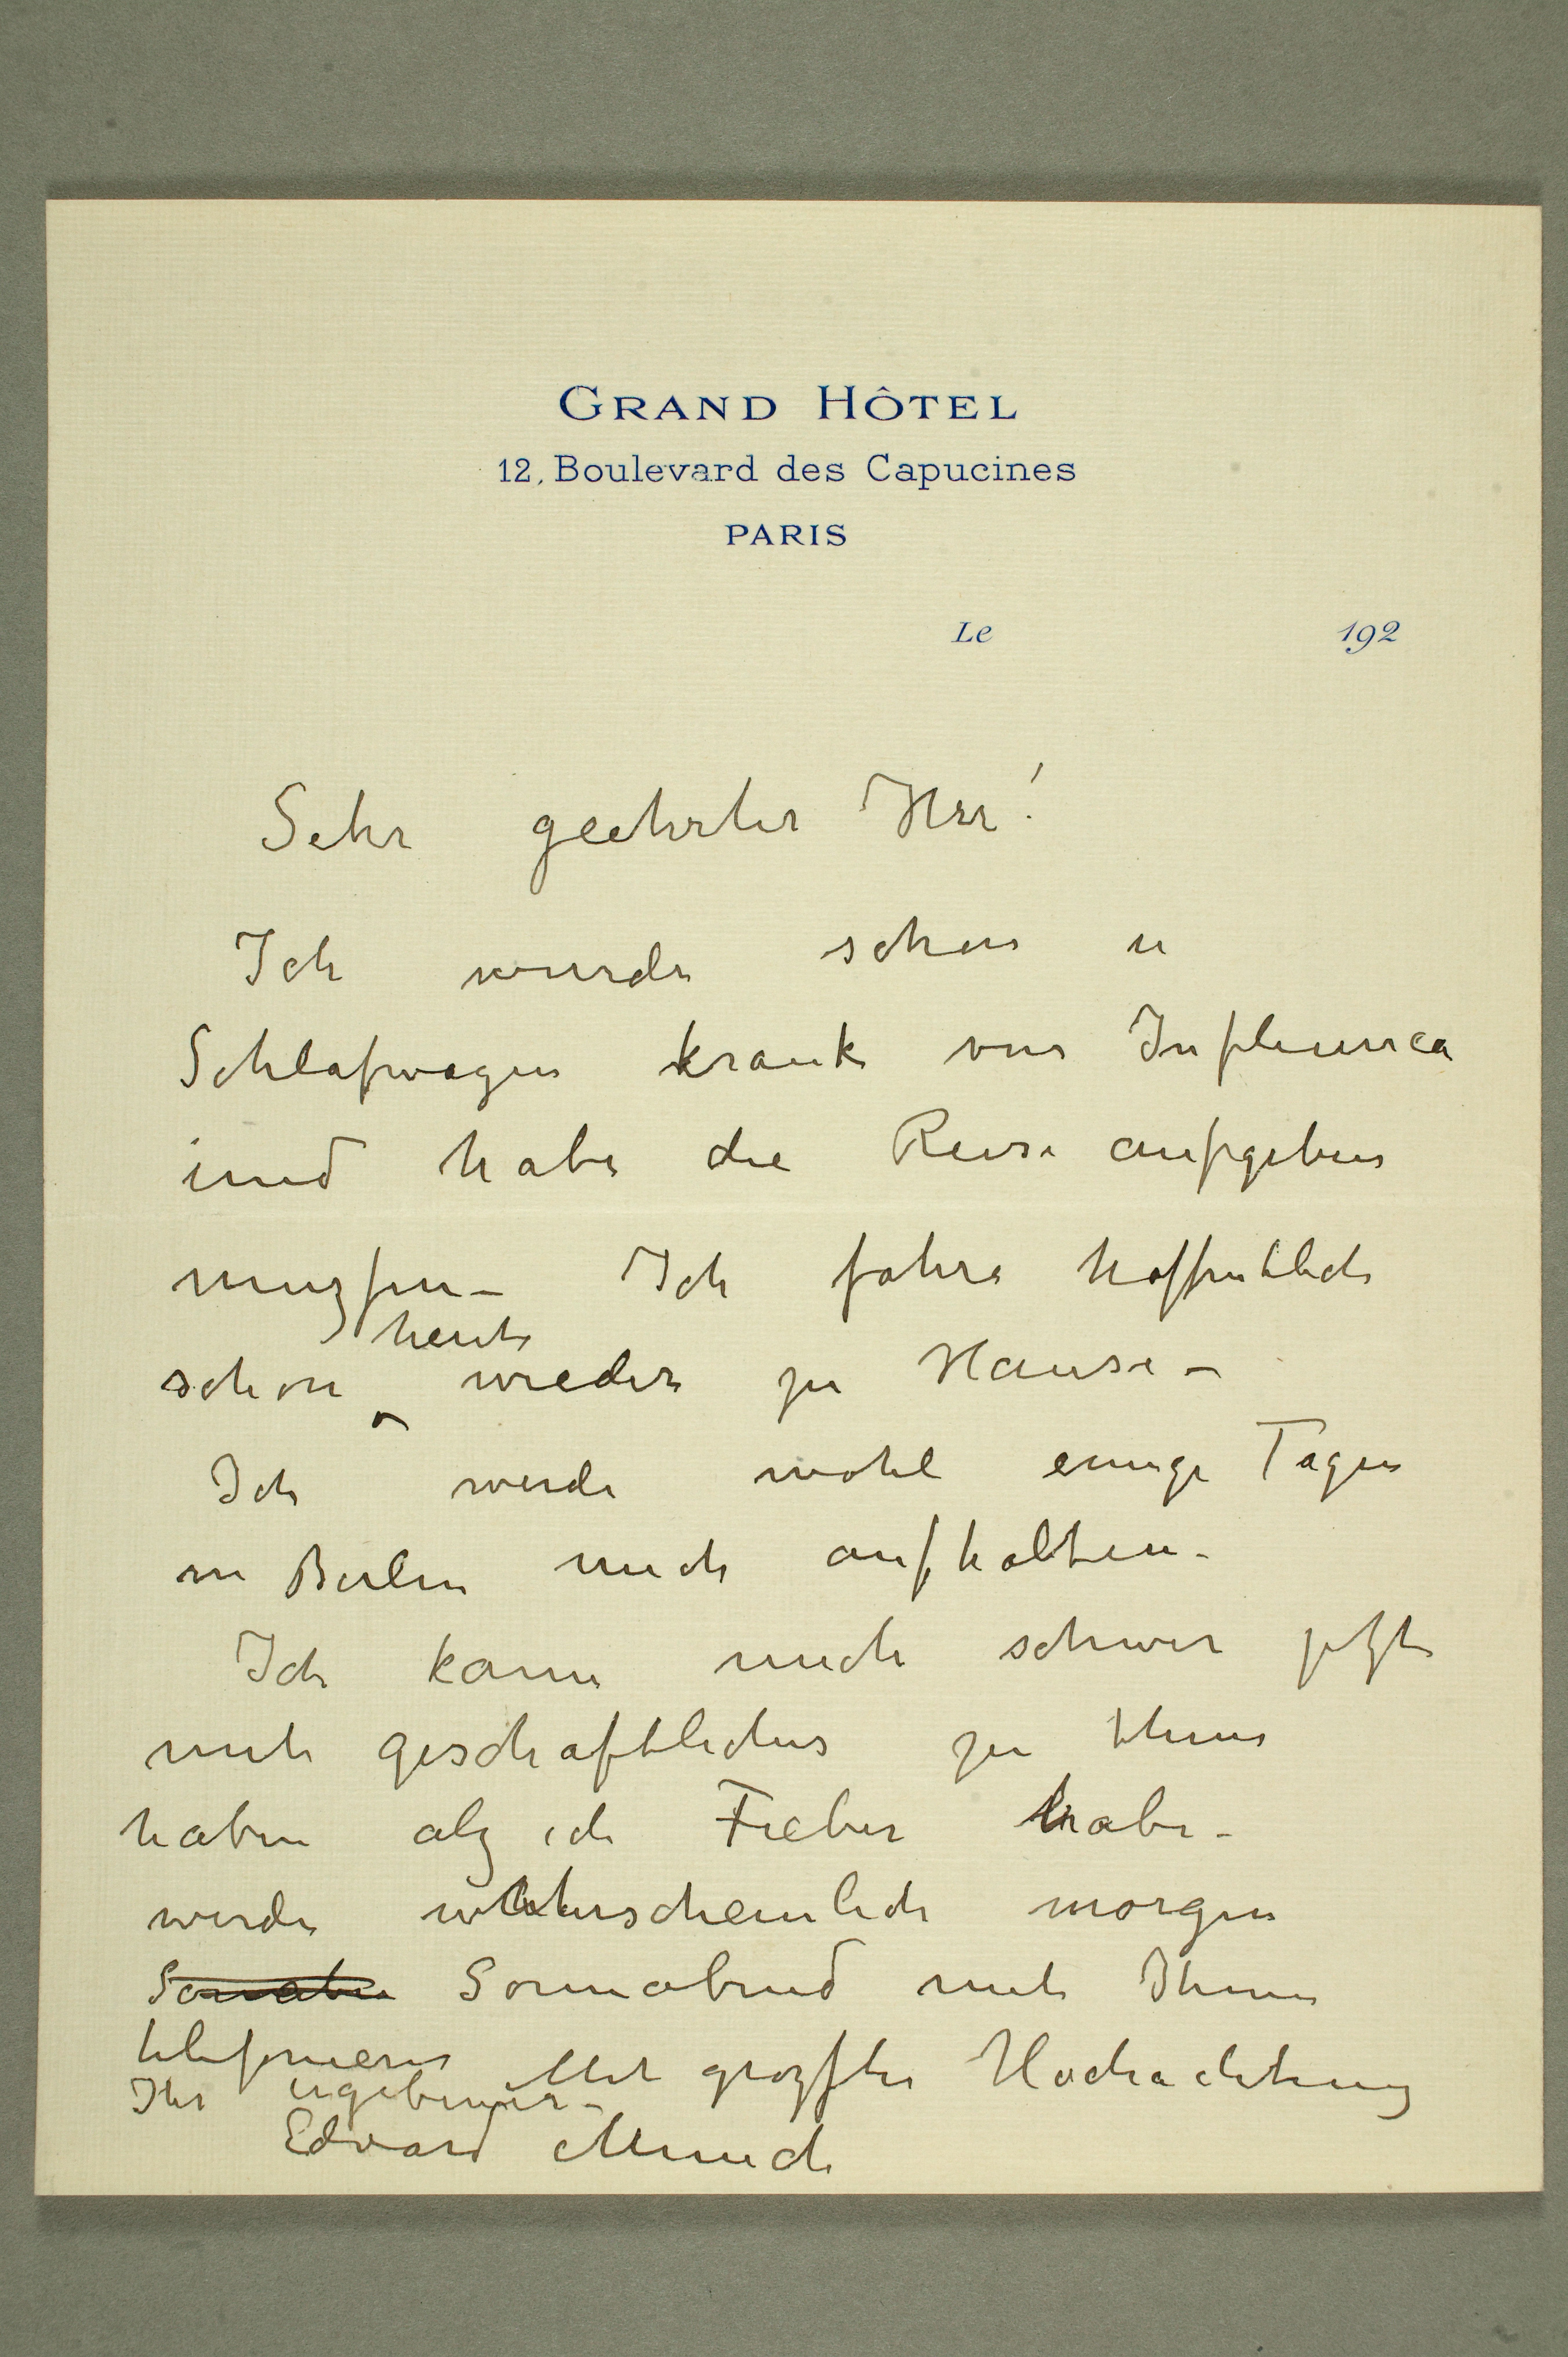 GRAND HÔTEL
12, Boulevard des Capucines
PARIS
Le 192
Sehr geehrter Herr!
Ich wurde schon in
Schlafwagen krank von Influenca
und habe die Reise aufgeben
muzsen – Ich fahre hoffentlich
heute
schon wieder zu Hause –
Ich werde wohl einige Tagen
in Berlin mich aufhalten –
Ich kann mich schwer jetzt
mit geschaftliches zu thun
haben alz ich Fieber habe –
werde wahrscheinlich morgen
Sonnabend mit Ihnen
telefonieren Mit grozster Hochachtung
Ihr ergebener –
Edvard Munch